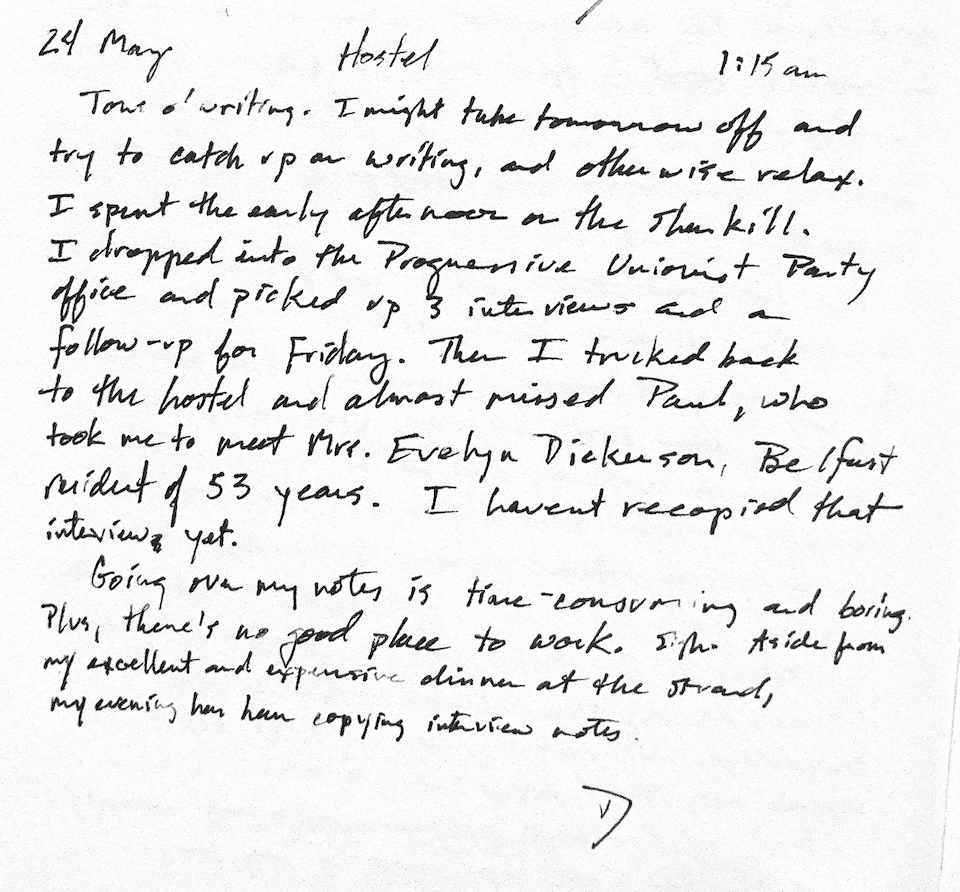 24 May Hostel 1:15 am
Tons o' writing. I might take tomorrow off and
try to catch up on writing, and otherwise relax.
I spent the early afternoon on the Shankill.
I dropped into the Progressive Unionist Party
office and picked up 3 interviews and a
follow-up for Friday. Then I trucked back
to the hostel and almost missed Paul, who
took me to meet Mrs. Evelyn Dickerson, Belfast
resident of 53 years. I havent recopied that
interview yet.
Going over my notes is time-consuming and boring.
Plus, there's no good place to work. Sigh. Aside from
my excellent and expensive dinner at the Strand,
my evening has been copying interview notes.